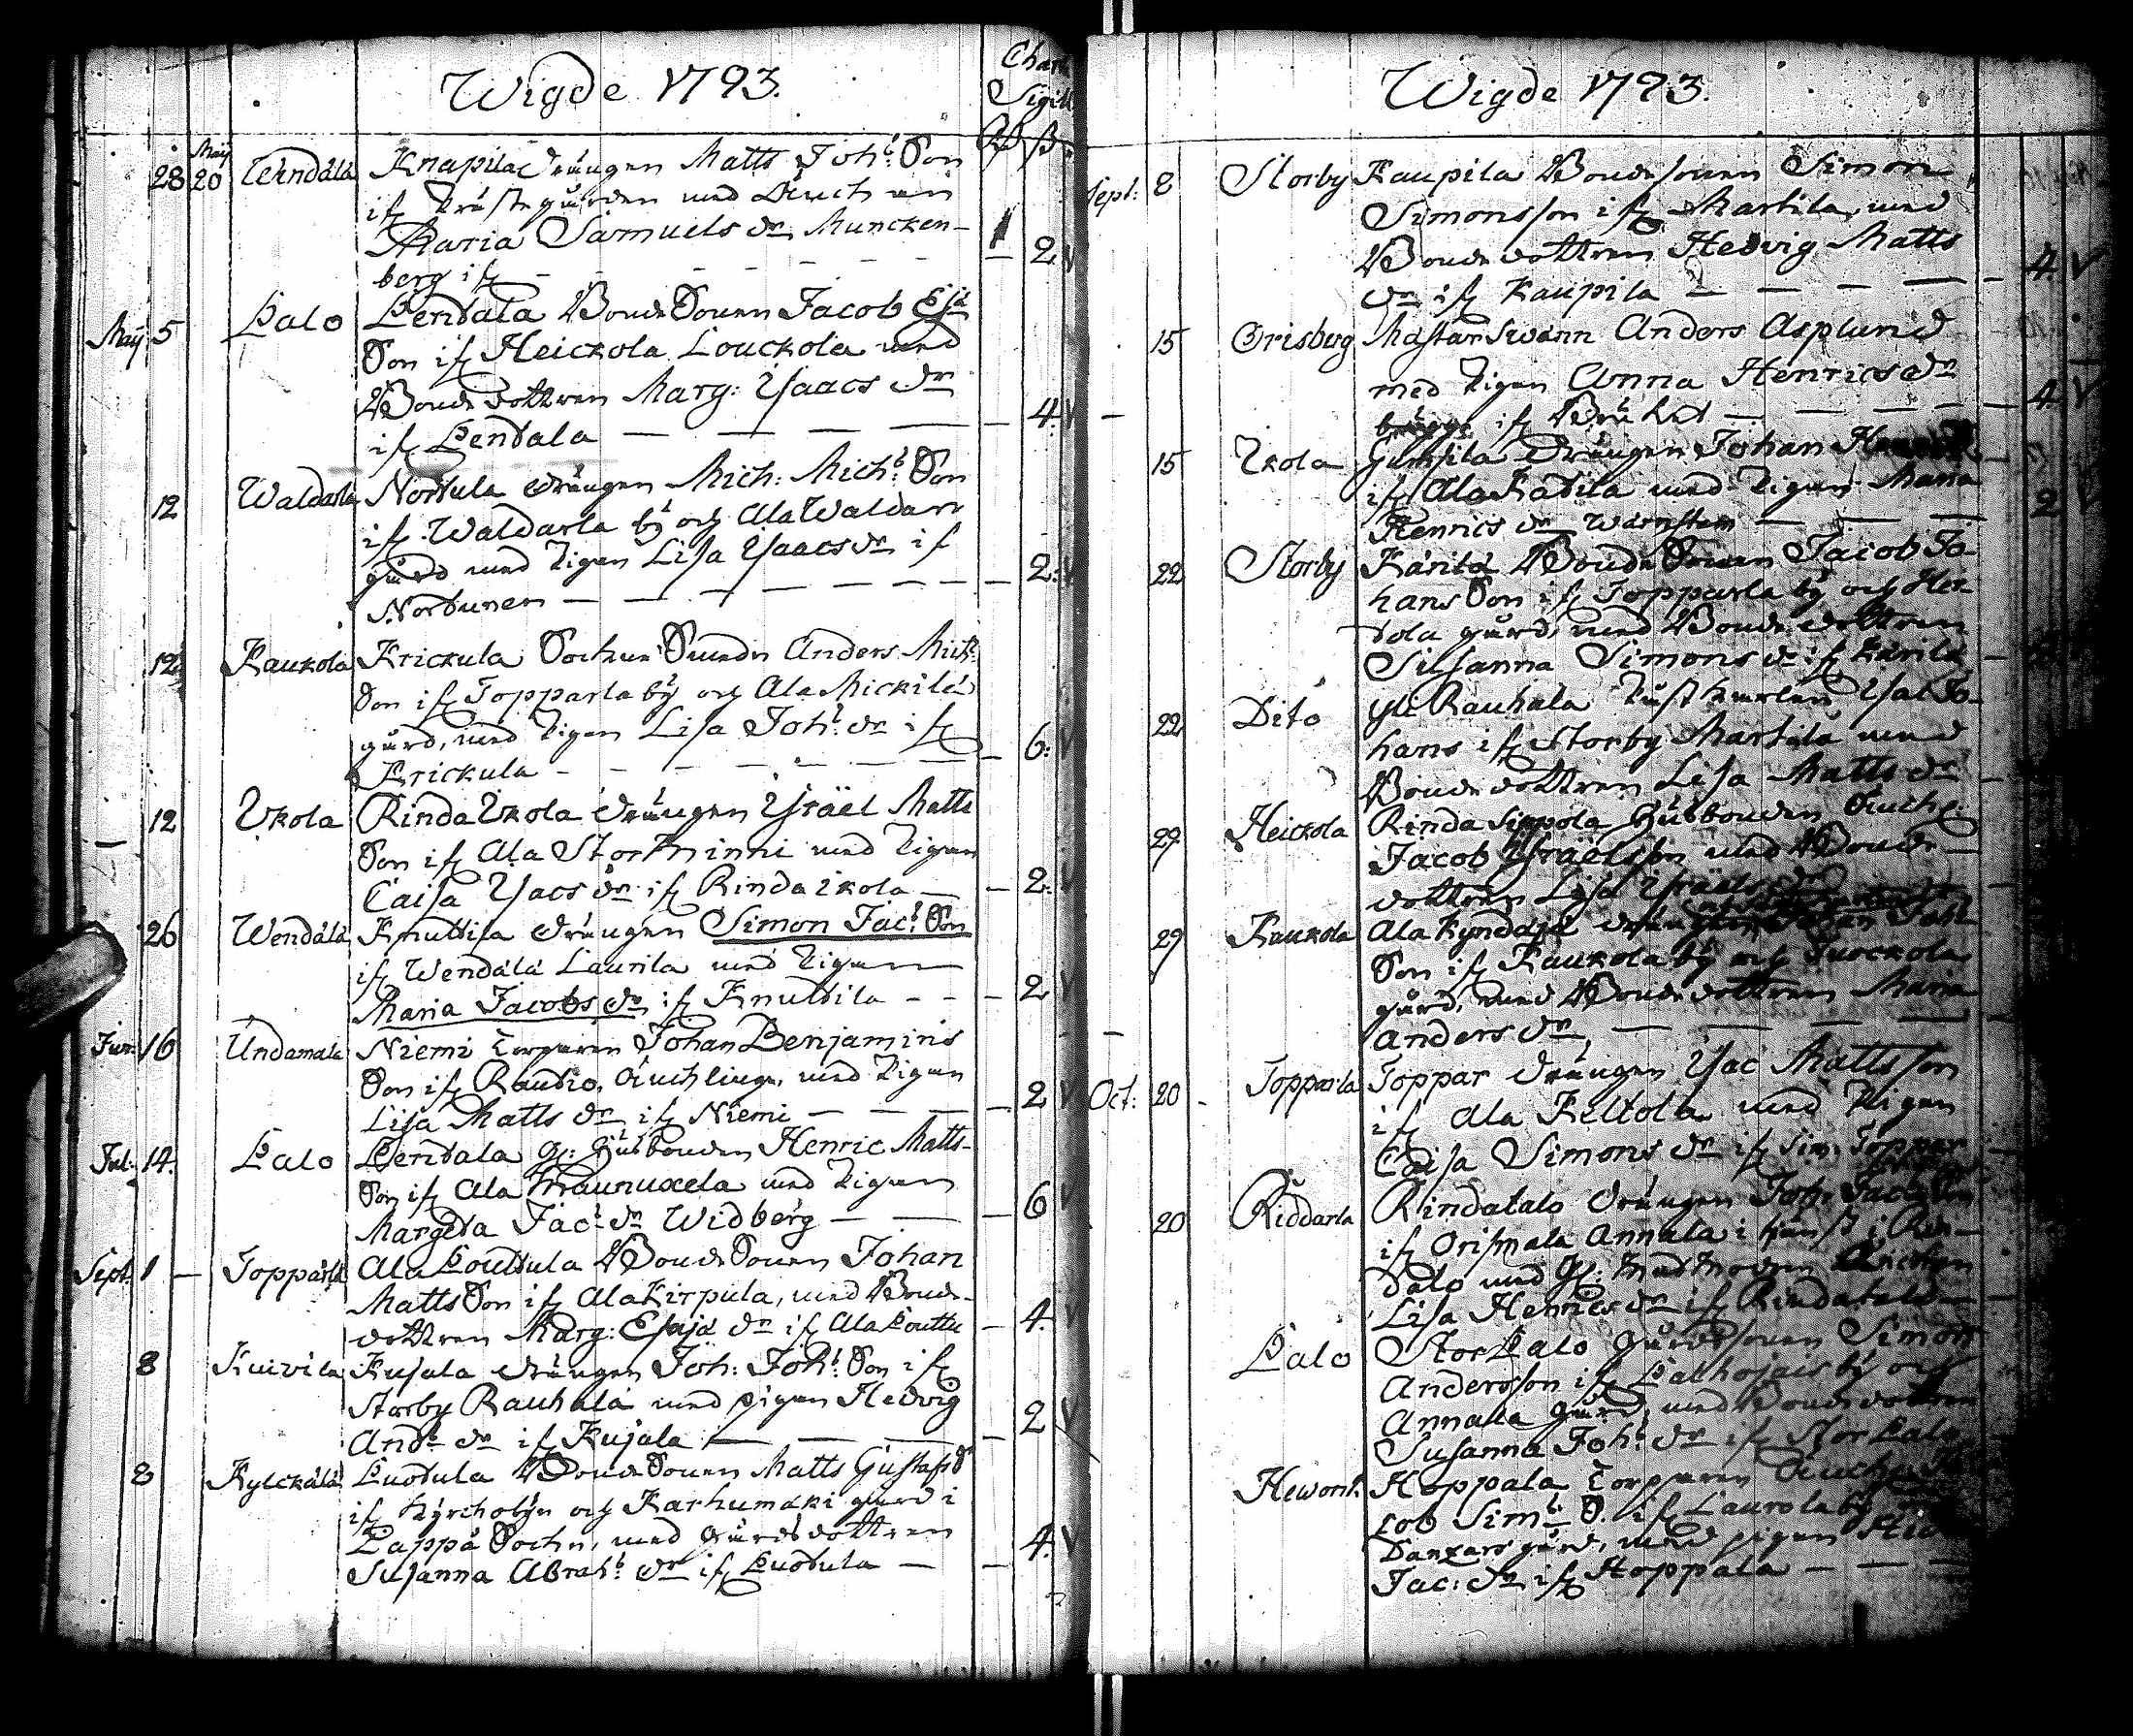 Wigde 1793.
Chart
Sigill
28 Maij 20 Wendälä Knapila drängen Matts Joh:s Son
if Prästegården med Änckan
Maria Samuels dr Muncken-
berg if — — — 2
Maij 5 Palo Pendala Bonde Sonen Jacob Esa
Son if Heickola Louckola med
Bonde dottren Marg: Isaacs dr
if Pendala — — — 4
12 Waldarla Nordula drängen Mich: Mich:s Son
if Waldarla by och Ala Waldari
gård med Pigan Lisa Isaacs dr if
Nordunen — — — 2
12 Kaukola Krickula Sochne Smeden Anders Mich:
Son if Topparla by och Ala Mickilä
gård, med Pigan Lisa Joh:s dr if
Krickula — — — 6
12 Ikola Rinda Ikola drängen Israël Matts
Son if Ala Storkninni med Pigan
Caisa Isacs dr if Rinda ikola — 2
26 Wendälä Knuttila drängen Simon Jac:s Son
if Wendälä Laurila med Pigan
Maria Jacobs dr if Knuttila — — 2
Jun: 16 Undamala Niemi Torparen Johan Benjamins
Son if Raudio, Änchlinge, med Pigan
Lisa Matts dr if Niemi — — — 2
Jul: 14. Palo Pendala Gl: Husbonden Henric Matts-
Son if Ala Maunuxela med Pigan
Margeta Jac:s dr Widberg — — 6
Sept: 1 — Topparla Ala Pouttula Bonde Sonen Johan
Matts Son if Ala Kirpula, med Bonde-
dottren Marg: Esaja dr if Ala Pouttu — 4
8 Kuivila Kujala drängen Joh: Joh:s Son if
Storby Rauhala med pigan Hedvig
And:s dr if Kujala — — — 2
8 Kylckälä Puodula Bonde Sonen Matts Gustafs S
if Kyrckobyn och Karhumäki gård i
Lappå Sochn, med Gårds dottren
Susanna Abrah:s dr if Puodula — — 4
Wigde 1793.
Sept: 8 Storby Kaupila Bonde sonen Simon
Simonsson if Martila, med
Bonde dottren Hedvig Matts
dr if Kaupila — — — 4
15 Orisberg Mästar Swänn Anders Asplund
med Pigan Anna Henrics dr
bägge if Bruket — — — 4
15 Ikola Gunsila Drängen Johan
if Ala Kadila med Pigan Maria
Henrics dr Wärnstam — — 2
22 Storby Kärilä Bonde Sonen Jacob Jo-
hans Son if Topparla by och Hei-
dola gård, med Bonde dottren
Susanna Simons dr if Kärilä —
22 Dito Yli Rauhala Rusthållaren Isac Jo-
hans if Storby Martila med
Bonde dottren Lisa Matts dr —
29 Heickola Rinda Sippola Husbonden Änckl:
Jacob Israëlsson med Bonde
dottren Lisa Israëls dr
29 Kaukola Ala Kyndäjä drängen Johan Joh:
Son if Kaukola by och Jurckola
gård, med Bonde dottren Maria
Anders dr, — — — —
Oct: 20 Topparla Toppar drängen Isac Mattsson
if Ala Keltola med Pigan
Caisa Simons dr if Sim: Toppar
20 Riddarla Rindatalo drängen Joh: Jac:s Son
if Orismala Annala i tjänst i Rin-
dalo med Gl: Matmodren
Lisa Henrics dr if Rindatalo —
Palo Stor Palo gårdssonen Simon
Andersson if Palhojais by och
Annala gård, med Bonde dottren
Susanna Joh:s dr if Stor Palo
Heworst: Hoppala Torparen Änckl: Ja
cob Sim:s S. if Laurola by
Danzars gård, med pigan
Jac: dr if Hoppala — —